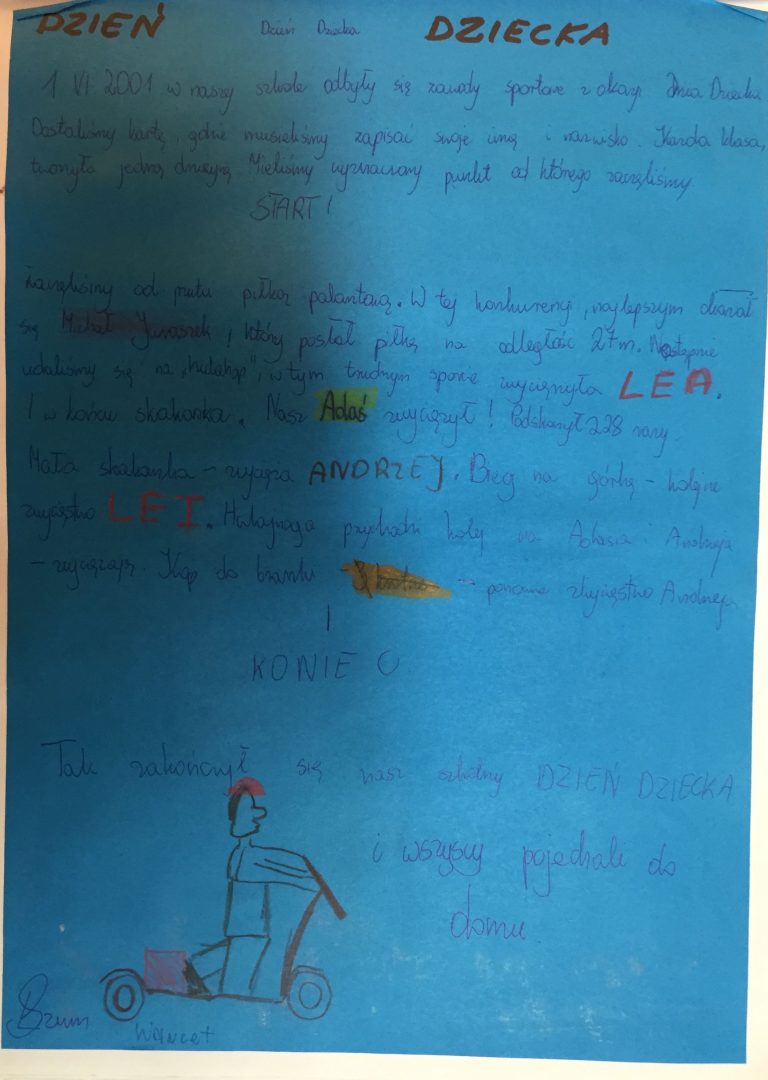 DZIEŃ Dzień Dziecka DZIECKA
1 VI 2001 w naszej szkole odbyły się zawody sportowe z okazji Dnia Dziecka
Dostaliśmy kartę, gdzie musieliśmy zapisać swoje imię i nazwisko. Każda klasa,
tworzyła jedną drużynę. Mieliśmy wyznaczony punkt od którego zaczęliśmy.
START!
Zaczęliśmy od rzutu piłką palantową. W tej konkurencji, najlepszym okazał
się Michał, który posłał piłkę na odległość 27m. Następnie
udaliśmy się na „hulahop", w tym trudnym sporcie zwyciężyła LEA.
I w końcu skakanka. Nasz Adaś zwyciężył! Podskoczył 228 razy.
Mała skakanka – zwycięża ANDRZEJ. Bieg na górkę – kolejne
zwycięstwo LEI. Hulajnoga przychodzi kolej na Adasia i Andrzeja
– zwyciężają. Kop do bramki – ponowne zwycięstwo Andrzeja
!
KONIEC
Tak zakończył się nasz szkolny DZIEŃ DZIECKA
i wszyscy pojechali do
domu
Brum